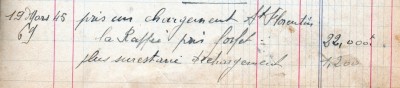 19 Mars 45 pris un chargement St Florentin
la Rappée prix forfet = 22,000
plus surestarie déchargement 1200